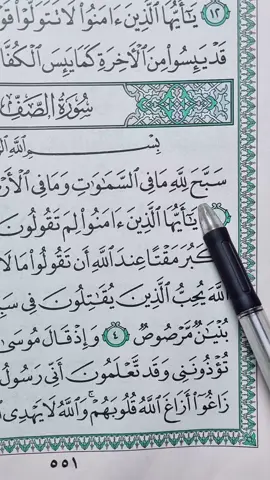 ١٣ يَٰٓأَيُّهَا ٱلَّذِينَ ءَامَنُوا۟ لَا تَتَوَلَّوْا۟ قَوْ
قَدْ يَئِسُوا۟ مِنَ ٱلْأَخِرَةِ كَمَا يَئِسَ ٱلْكُفَّا
سُورَةُ ٱلصَّفِّ
بِسْمِ ٱللَّهِ ٱل
سَبَّحَ لِلَّهِ مَا فِى ٱلسَّمَٰوَٰتِ وَمَا فِى ٱلْأَرْ
يَٰٓأَيُّهَا ٱلَّذِينَ ءَامَنُوا۟ لِمَ تَقُولُونَ
كَبُرَ مَقْتًا عِندَ ٱللَّهِ أَن تَقُولُوا۟ مَا لَا
ٱللَّهَ يُحِبُّ ٱلَّذِينَ يُقَٰتِلُونَ فِى سَبِ
بُنْيَٰنٌ مَّرْصُوصٌ ٤ وَإِذْ قَالَ مُوسَىٰ
تُؤْذُونَنِى وَقَد تَّعْلَمُونَ أَنِّى رَسُولُ
زَاغُوٓا۟ أَزَاغَ ٱللَّهُ قُلُوبَهُمْ ۚ وَٱللَّهُ لَا يَهْدِى
٥٥١